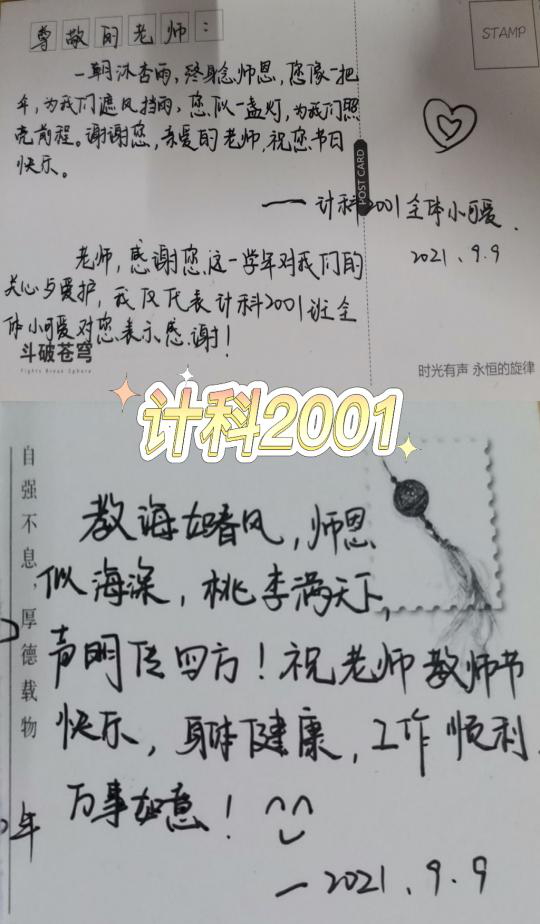 尊敬的老师:
STAMP
一朝沐杏雨,终身念师恩,您像一把
伞,为我们遮风挡雨,您似一盏灯,为我们照
亮前程。谢谢您,亲爱的老师,祝您节日
快乐。
POST CARD
——计科2001全体小可爱.
2021.9.9
老师,感谢您这一学年对我们的
关心与爱护,我仅代表计科2001班全
体小可爱对您表示感谢!
斗破苍穹
Fights Break Sphere
时光有声 永恒的旋律
计科2001
自强不息,厚德载物
教海如春风,师恩
似海深,桃李满天下,
声明传四方!祝老师教师节
快乐,身体健康,工作顺利,
万事如意!
年
—2021.9.9